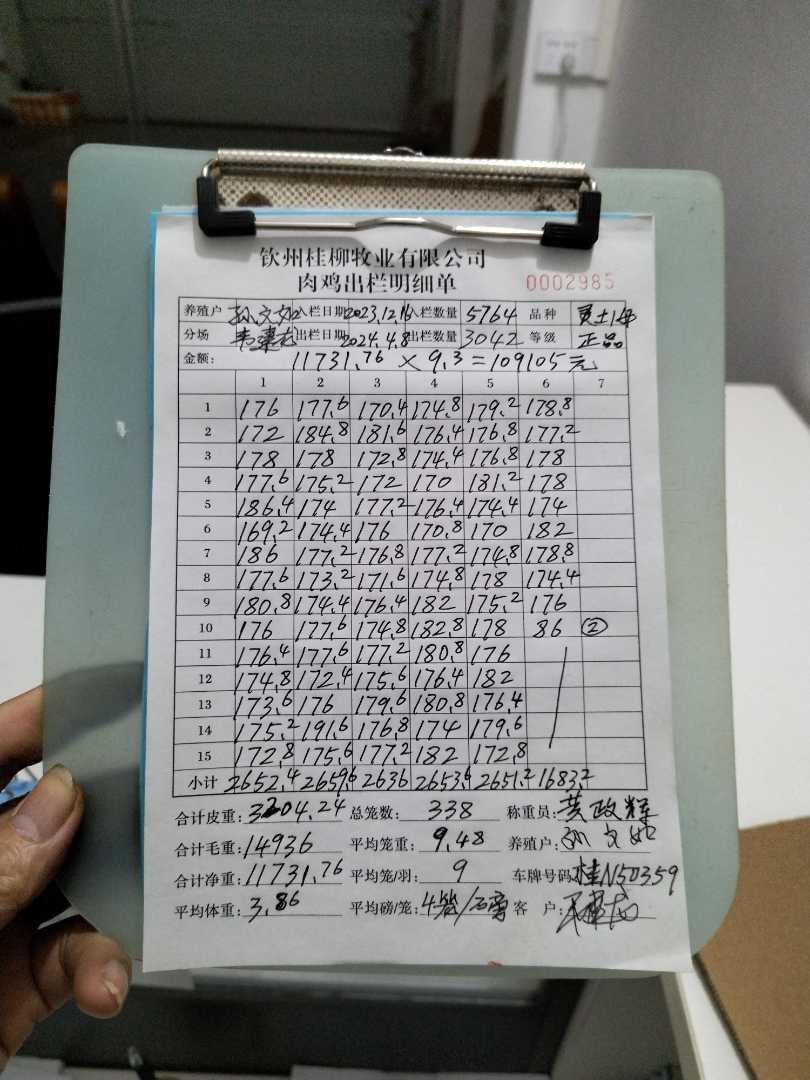 钦州桂柳牧业有限公司
肉鸡出栏明细单 0002985
养殖户 孙文 入栏日期 2023.12.16 入栏数量 5764 品种
分场 出栏日期 2024.4.8 出栏数量 3042 等级 正品
金额: 11731.76 × 9.3 = 109105元
1 2 3 4 5 6 7
1 176 177.6 170.4 174.8 179.2 178.8
2 172 184.8 181.6 176.4 176.8 177.2
3 178 178 172.8 174.4 176.8 178
4 177.6 175.2 172 170 181.2 178
5 186.4 174 177.2 176.4 174.4 174
6 169.2 174.4 176 170.8 170 182
7 186 177.2 176.8 177.2 174.8 178.8
8 177.6 173.2 171.6 174.8 178 174.4
9 180.8 174.4 176.4 182 175.2 176
10 176 177.6 174.8 182.8 178 86 ②
11 176.4 177.6 177.2 180.8 176
12 174.8 172.4 175.6 176.4 182
13 173.6 176 179.6 180.8 176.4
14 175.2 191.6 176.8 174 179.6
15 172.8 175.6 177.2 182 172.8
小计 2652.4 2659.6 2636 2653.6 2651.2 1683.2
合计皮重: 3204.24 总笼数: 338 称重员: 黄政辉
合计毛重: 14936 平均笼重: 9.48 养殖户: 孙文
合计净重: 11731.76 平均笼/羽: 9 车牌号码: 桂N50359
平均体重: 3.86 平均磅/笼: 4 客 户: